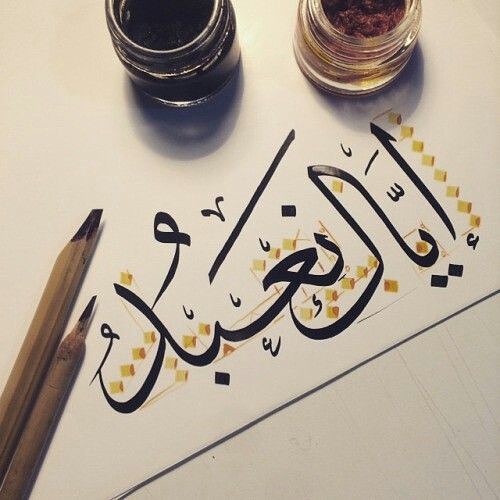 إياك نعبد